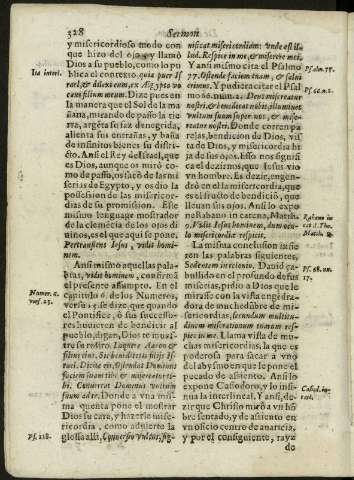 328
Sermon
y misericordioso modo con
que hizo del ojo, y llamó
Dios a su pueblo, como lo pu
blica el contexto. quia puer Is
rael, & dilexi eum, ex Ægypto vo
caui filium meum. Dize pues en
la manera que el Sol de la ma
ñana, mirando de passo la tie
rra, argéta su faz denegrida,
alienta sus entrañas, y baña
de infinitos bienes su distri-
cto. Ansi el Rey de Israel, que
es Dios, aunque os miró co-
mo de passo, os sacó de las mi
serias de Egypto, y os dio la
possession de las misericor-
dias de su promission. Esse
mismo lenguage mostrador
de la clemécia de los ojos di
uinos, es el que aqui se pone.
Pertransiens Iesus, vidit homi-
nem.
Ansi mismo aquellas pala-
bras, vidit hominem, confirmá
el presente assumpto. En el
capitulo 6. de los Numeros,
verso 25. se dize, que quando
el Pontifice, ò sus successo-
res huuieren de bendicir al
pueblo, digan, Dios te mues-
tre su rostro.
Dicite eis, Ostendat Dominus
faciem suam tibi & misereatur ti-
bi. Conuertat Dominus vultum
suum ad te. Donde a vna mis-
ma quenta pone el mostrar
Dios su cara, y hazerle miseri-
cordia, como aduierte la
glossa alli, Conuersio vultus, sig-
Ita interl.
Numer. 6.
vers. 25.
Ps. 118.
nificat misericordiam: Vnde est il-
lud. Respice in me, & miserere mei.
Y ansi mismo cita el Psalmo
77. Ostende faciem tuam, & salui
erimus. Y pudiera citar el Psal
mo 66. num. 2. Deus misereatur
nostri, & benedicat nobis, illuminet
vultum suum super nos, & misere-
atur nostri. Donde corren pa
rejas, bendicion de Dios, vis-
ta de Dios, y misericordia hi
ja de sus ojos. Esso nos signifi
ca el dezirnos, que Iesus vio
vn hombre. Es dezir, engen-
drò en el la misericordia, que
essa es la bendició, que engié
dran sus ojos. Ansi lo expo
ne Rabano in catena, Matth. 9.
Vidit Iesus hominem, dum ocu-
lo misericordiæ respicit.
La misma conclusion infie
ren las palabras siguientes.
Sedentem in telonio. Dauid ça-
bullido en el profundo de sus
miserias, pidio a Dios que le
mirasse con la vista engédra-
dora de muchedúbre de mi-
sericordias, secundum multitu-
dinem miserationum tuarum res-
pice in me. Llama vista de mu-
chas misericordias, la que es
poderosa para sacar a vno
del abysmo en que le ha pues
to el pecado de assiento. Ansi lo
expone Casiodoro, y lo insi-
nua la interlineal. Y ansi, de-
zir que Christo miró a vn hó
bre sentado, y de assiento en
vn oficio centro de auaricia,
y por el consiguiente, raya
de
Psalm. 77.
Ps. 66. n. 2.
Rabano in
cat. d. Tho.
Matth. 9.
Ps. 68. nu.
17.
Casiod. in-
terl.